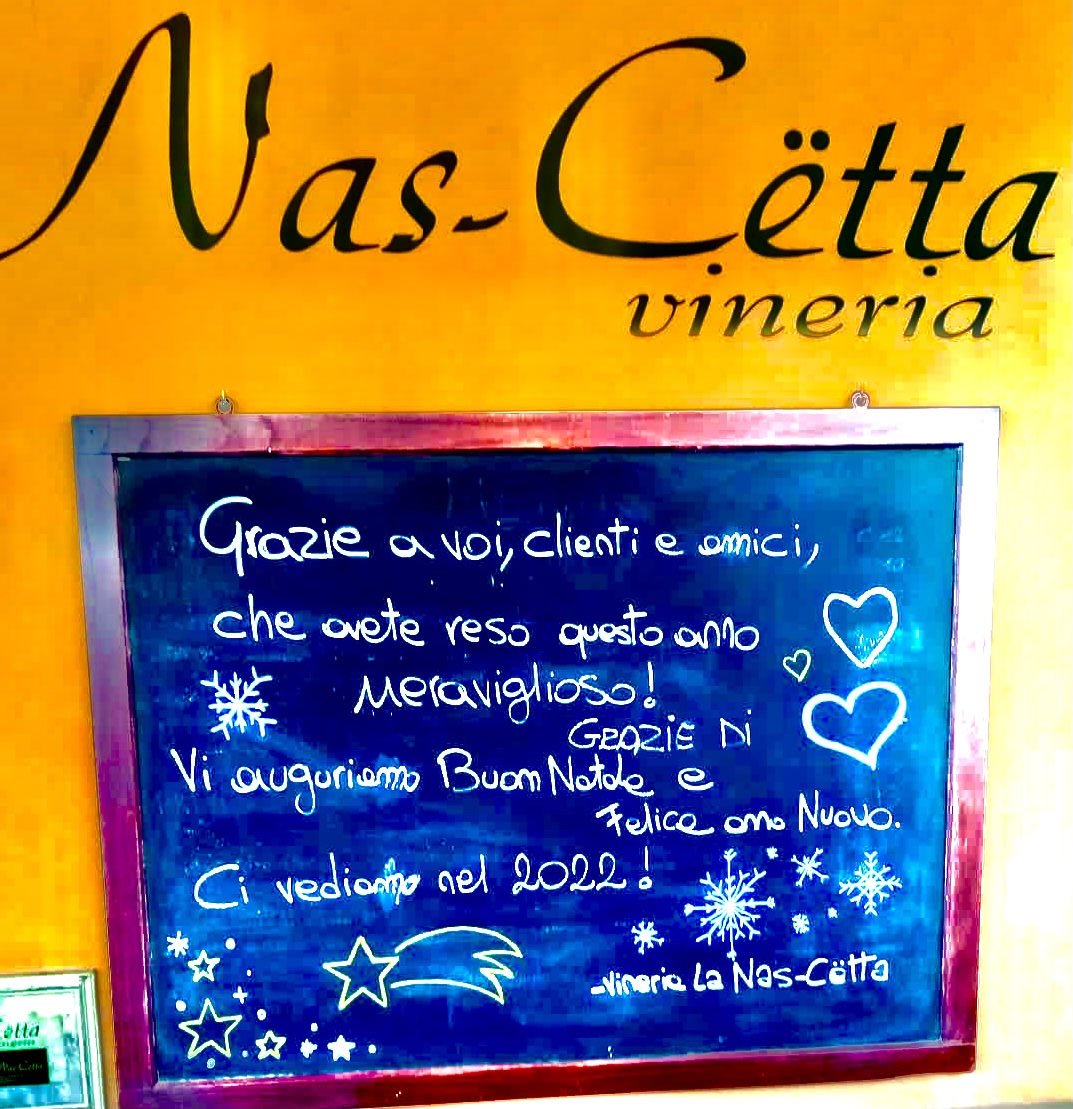 Nas-Cëtta
vineria
Grazie a voi, clienti e amici,
che avete reso questo anno
meraviglioso!
GRAZIE Di
Vi auguriamo Buon Natale e
Felice anno Nuovo.
Ci vediamo nel 2022!
-vineria La Nas-Cëtta
Cëtta
Nas-Cëtta